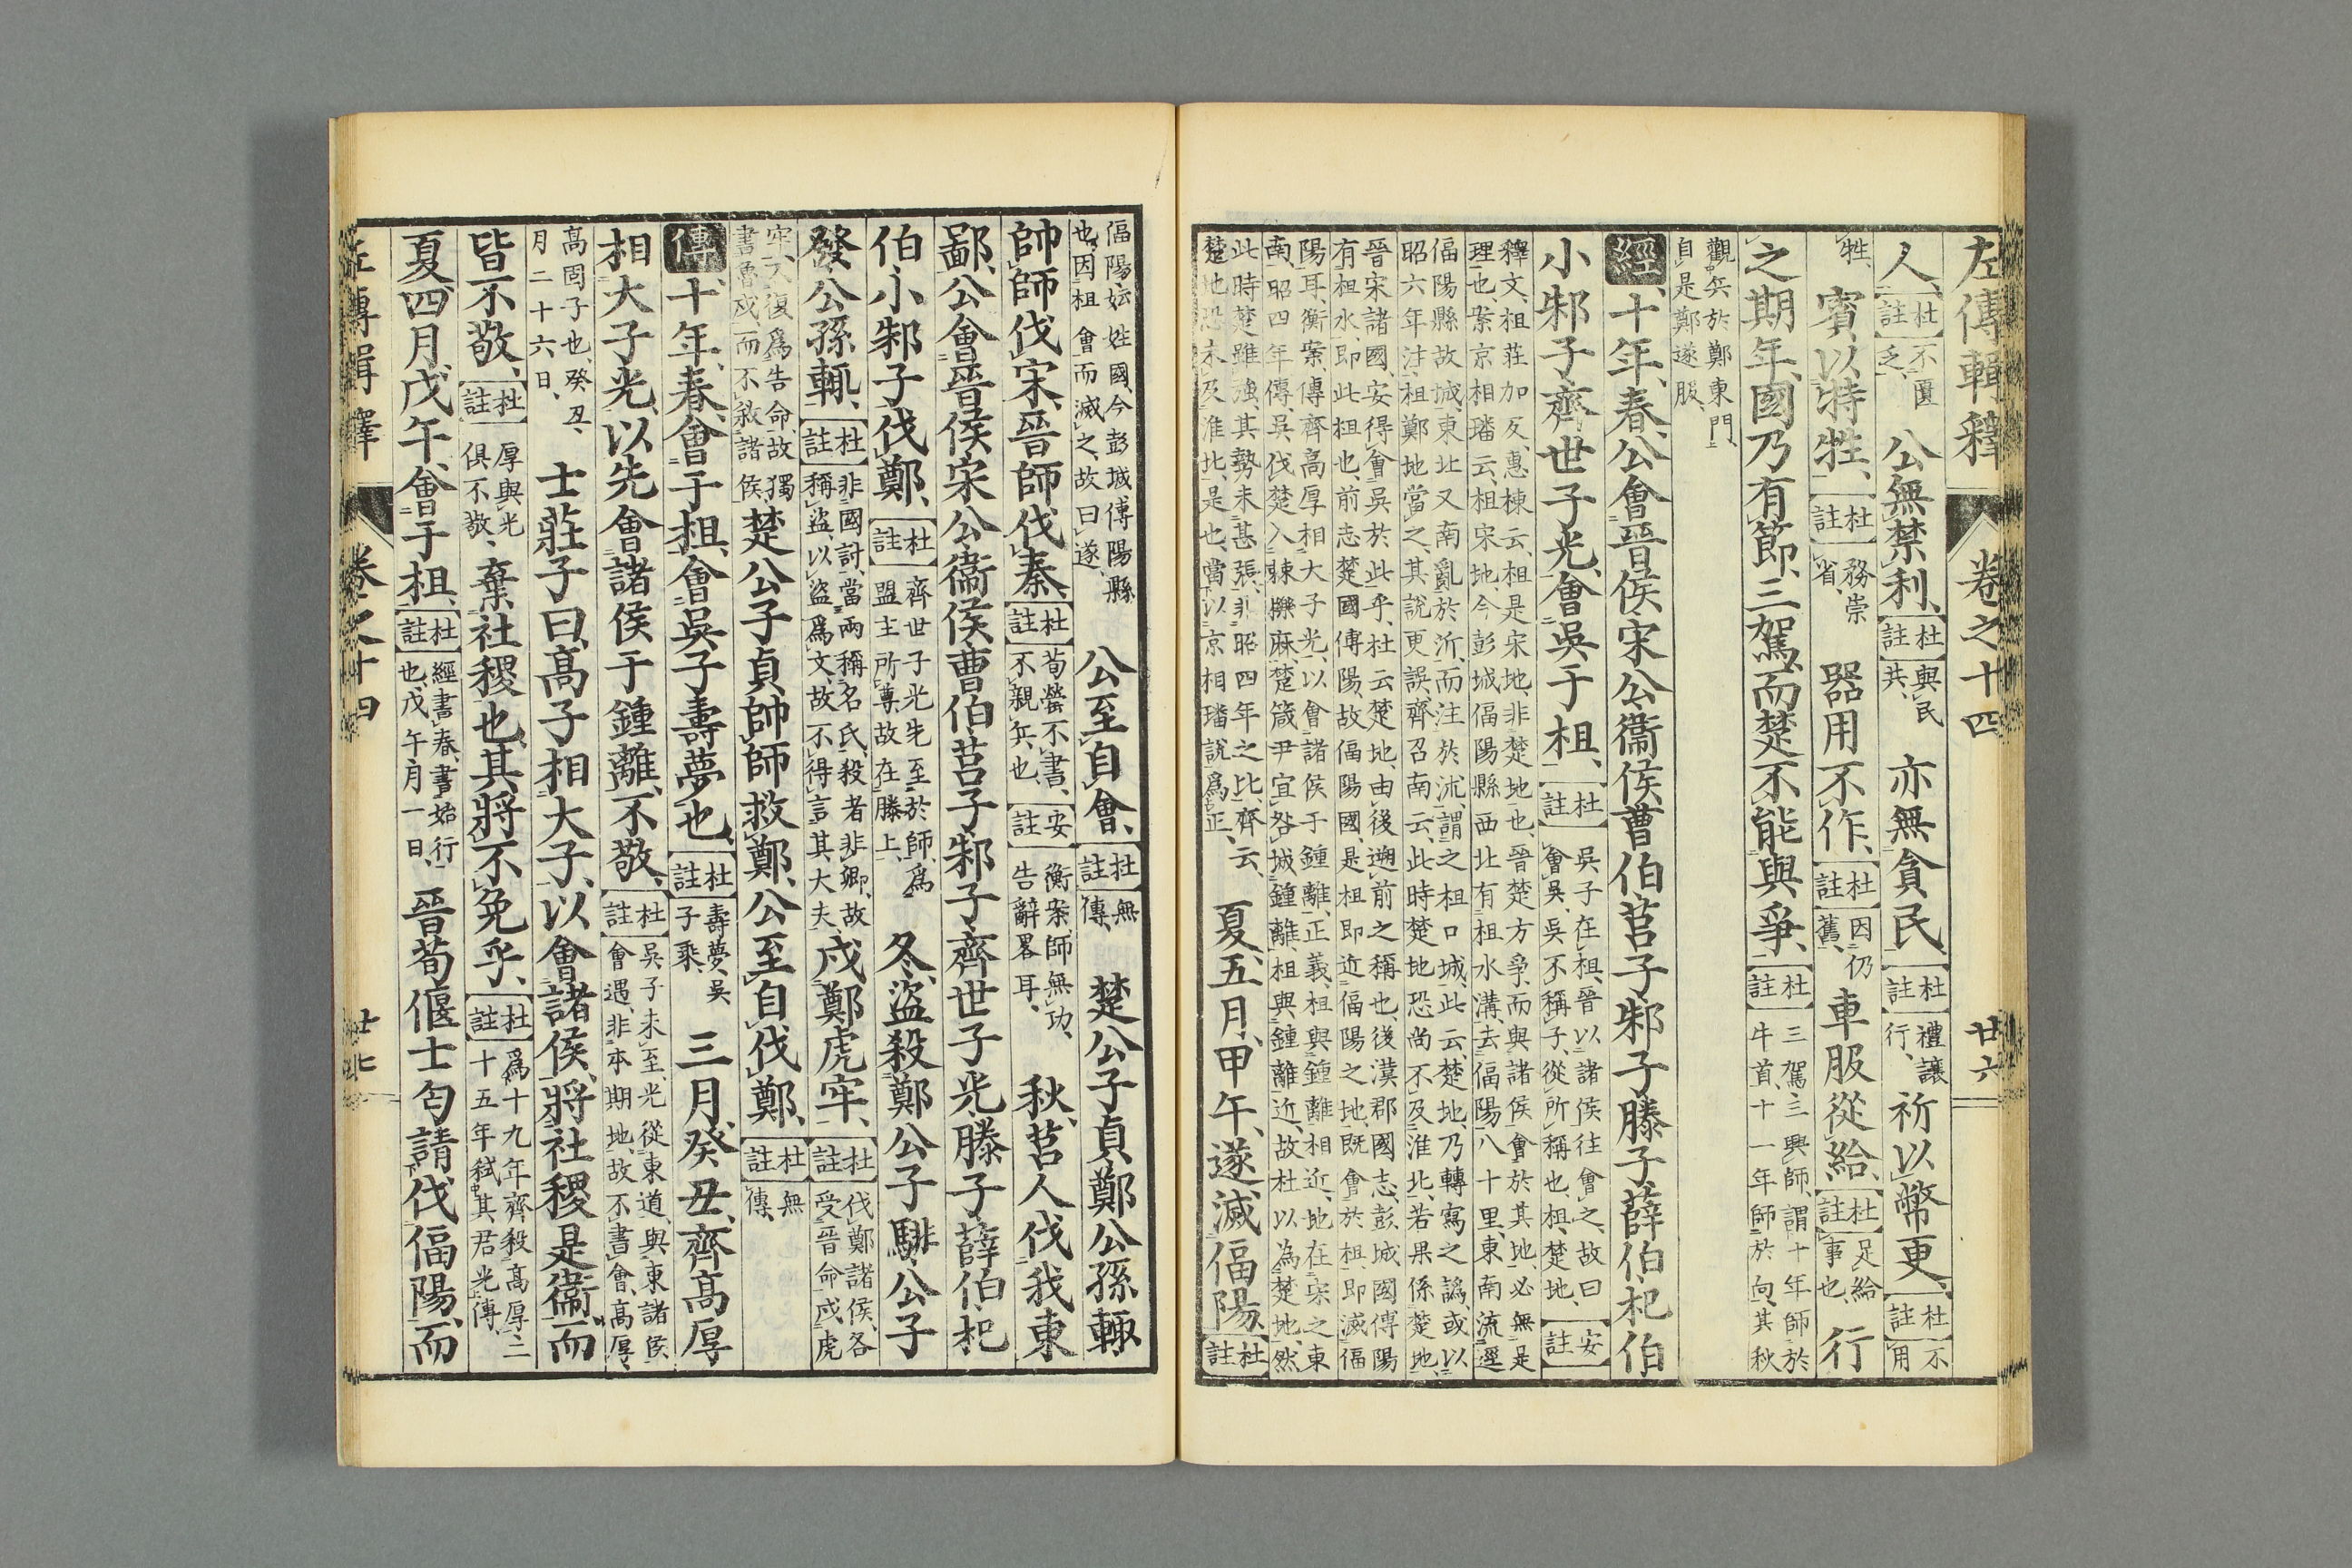 左傳輯釋　卷之十四　廿六
人、杜註不匱乏、公無禁利、杜註與民共、亦無貪民、杜註禮讓行、祈以幣更、杜註不用
牲、賓以特牲、杜註務崇省、器用不作、杜註因仍舊、車服從給、杜註足給事也、行
之期年、國乃有節、三駕而楚不能與爭、杜註三駕三興師、謂十年師於牛首、十一年師於向、其秋
觀兵於鄭東門、自是鄭遂服、
經、十年、春、公會晉侯宋公衞侯曹伯莒子邾子滕子薛伯杞伯
小邾子齊世子光、會吳于柤、杜註吳子在柤、晉以諸侯往會之、故曰會吳、吳不稱子、從所稱也、柤、楚地、安註
釋文、柤莊加反、惠棟云、柤是宋地、非楚地也、晉楚方爭、而與諸侯會於其地、必無是理也、案京相璠云、柤宋地、今彭城偪陽縣西北有柤水溝、去偪陽八十里、東南流逕
偪陽縣故城、東北又南亂於沂、而注於沭、謂之柤口城、此云楚地、乃轉寫之譌、或以昭六年注、柤鄭地當之、其說更誤、齊召南云、此時楚地恐尚不及淮北、若果係楚地、
晉宋諸國、安得會吳於此乎、杜云楚地、由後遡前之稱也、後漢郡國志、彭城國傅陽有柤水、即此柤也、前志楚國傅陽、故偪陽國、是柤即近偪陽之地、既會於柤、即滅偪
陽耳、衡案、傳齊高厚相大子光、以會諸侯于鍾離、正義、柤與鍾離相近、地在宋之東南、昭四年傳、吳伐楚入棘櫟麻、楚箴尹宜咎城鍾離、柤與鍾離近、故杜以為楚地、然
此時楚雖強、其勢未甚張、非昭四年之比、齊云、楚地恐未及淮北、是也、當以京相璠說爲正、夏、五月、甲午、遂滅偪陽、杜註
偪陽、妘姓國、今彭城傅陽縣也、因柤會而滅之、故曰遂、公至自會、杜註無傳、楚公子貞鄭公孫輒
帥師伐宋、晉師伐秦、杜註荀罃不書、不親兵也、安註衡案、師無功、告辭畧耳、秋、莒人伐我東
鄙、公會晉侯宋公衞侯曹伯莒子邾子齊世子光滕子薛伯杞
伯小邾子伐鄭、杜註齊世子光先至於師、爲盟主所尊、故在滕上、冬、盜殺鄭公子騑公子
發公孫輒、杜註非國討、當兩稱名氏、殺者非卿、故稱盜、以盜爲文、故不得言其大夫、戍鄭虎牢、杜註伐鄭諸侯、各受晉命戍虎
牢、不復爲告命、故獨書魯戍、而不敘諸侯、楚公子貞帥師救鄭、公至自伐鄭、杜註無傳、
傳、十年、春、會于柤、會吳子壽夢也、杜註壽夢、吳子乘、三月、癸丑、齊高厚
相大子光、以先會諸侯于鍾離、不敬、杜註吳子未至、光從東道、與東諸侯會遇、非本期地、故不書會、高厚、
高固子也、癸丑、月二十六日、士莊子曰、高子相大子、以會諸侯、將社稷是衞、而
皆不敬、杜註厚與光俱不敬、棄社稷也、其將不免乎、杜註爲十九年齊殺高厚、二十五年弒其君光傳、
夏、四月、戊午、會于柤、杜註經書春、書始行也、戊午、月一日、晉荀偃士匄請伐偪陽、而
左傳輯釋　卷之十四　廿七